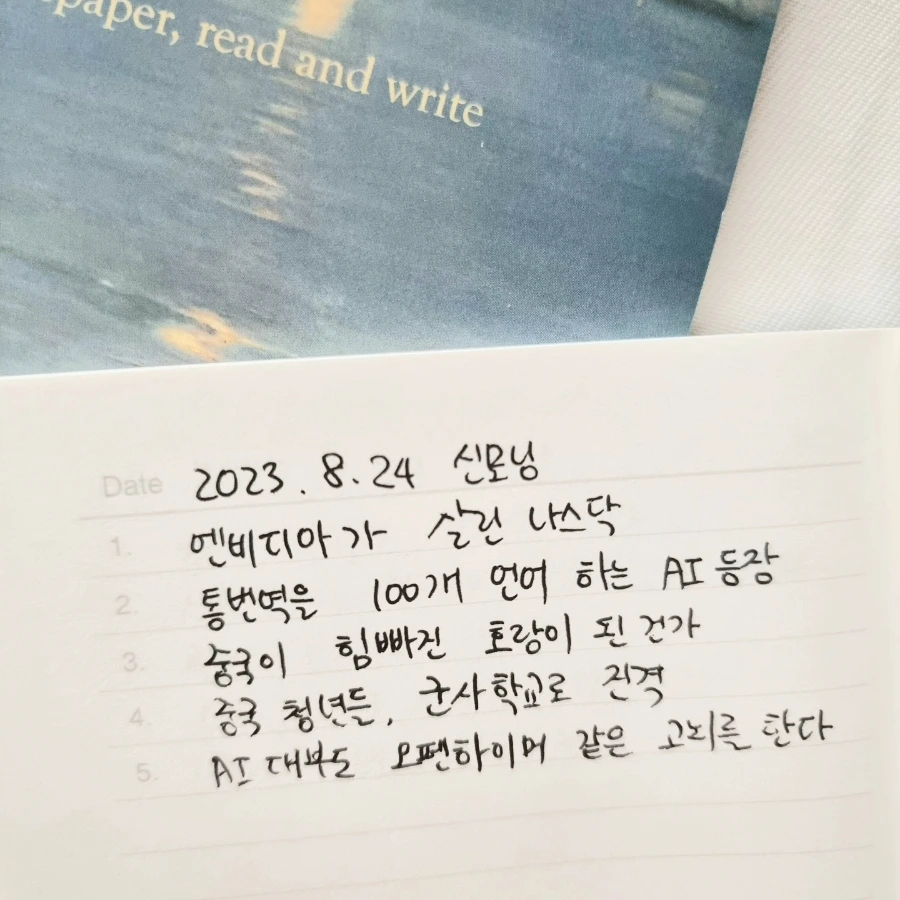 paper, read and write
Date 2023.8.24 신모닝
1. 엔비디아가 살린 나스닥
2. 통번역을 100개 언어 하는 AI 등장
3. 중국이 힘빠진 호랑이 된 건가
4. 중국 청년들, 군사학교로 진격
5. AI 대부도 오펜하이머 같은 고뇌를 한다